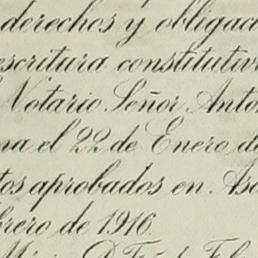 derechos y obligac
escritura constitutiv
Notario Señor Anto
na el 22 de Enero de
tos aprobados en As
brero de 1916.